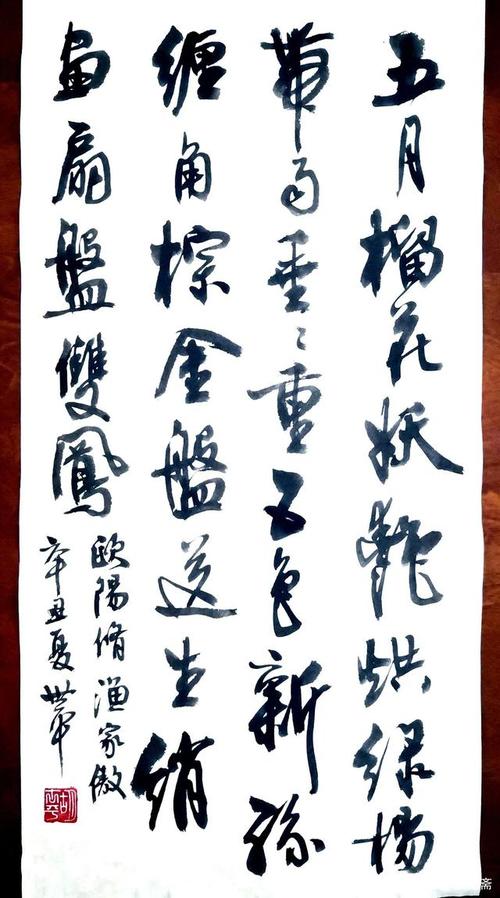 五月榴花妖艷烘綠楊
帶雨垂〻重五色新絲
纏角棕金盤送生綃
畫扇盤雙鳳
歐陽脩漁家傲
辛丑夏世
斋